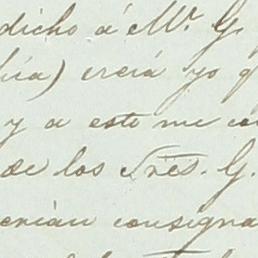 dicho á Mr. G.
hía) creía yo q
y a esto me co
de los Sres. G.
erían consigna